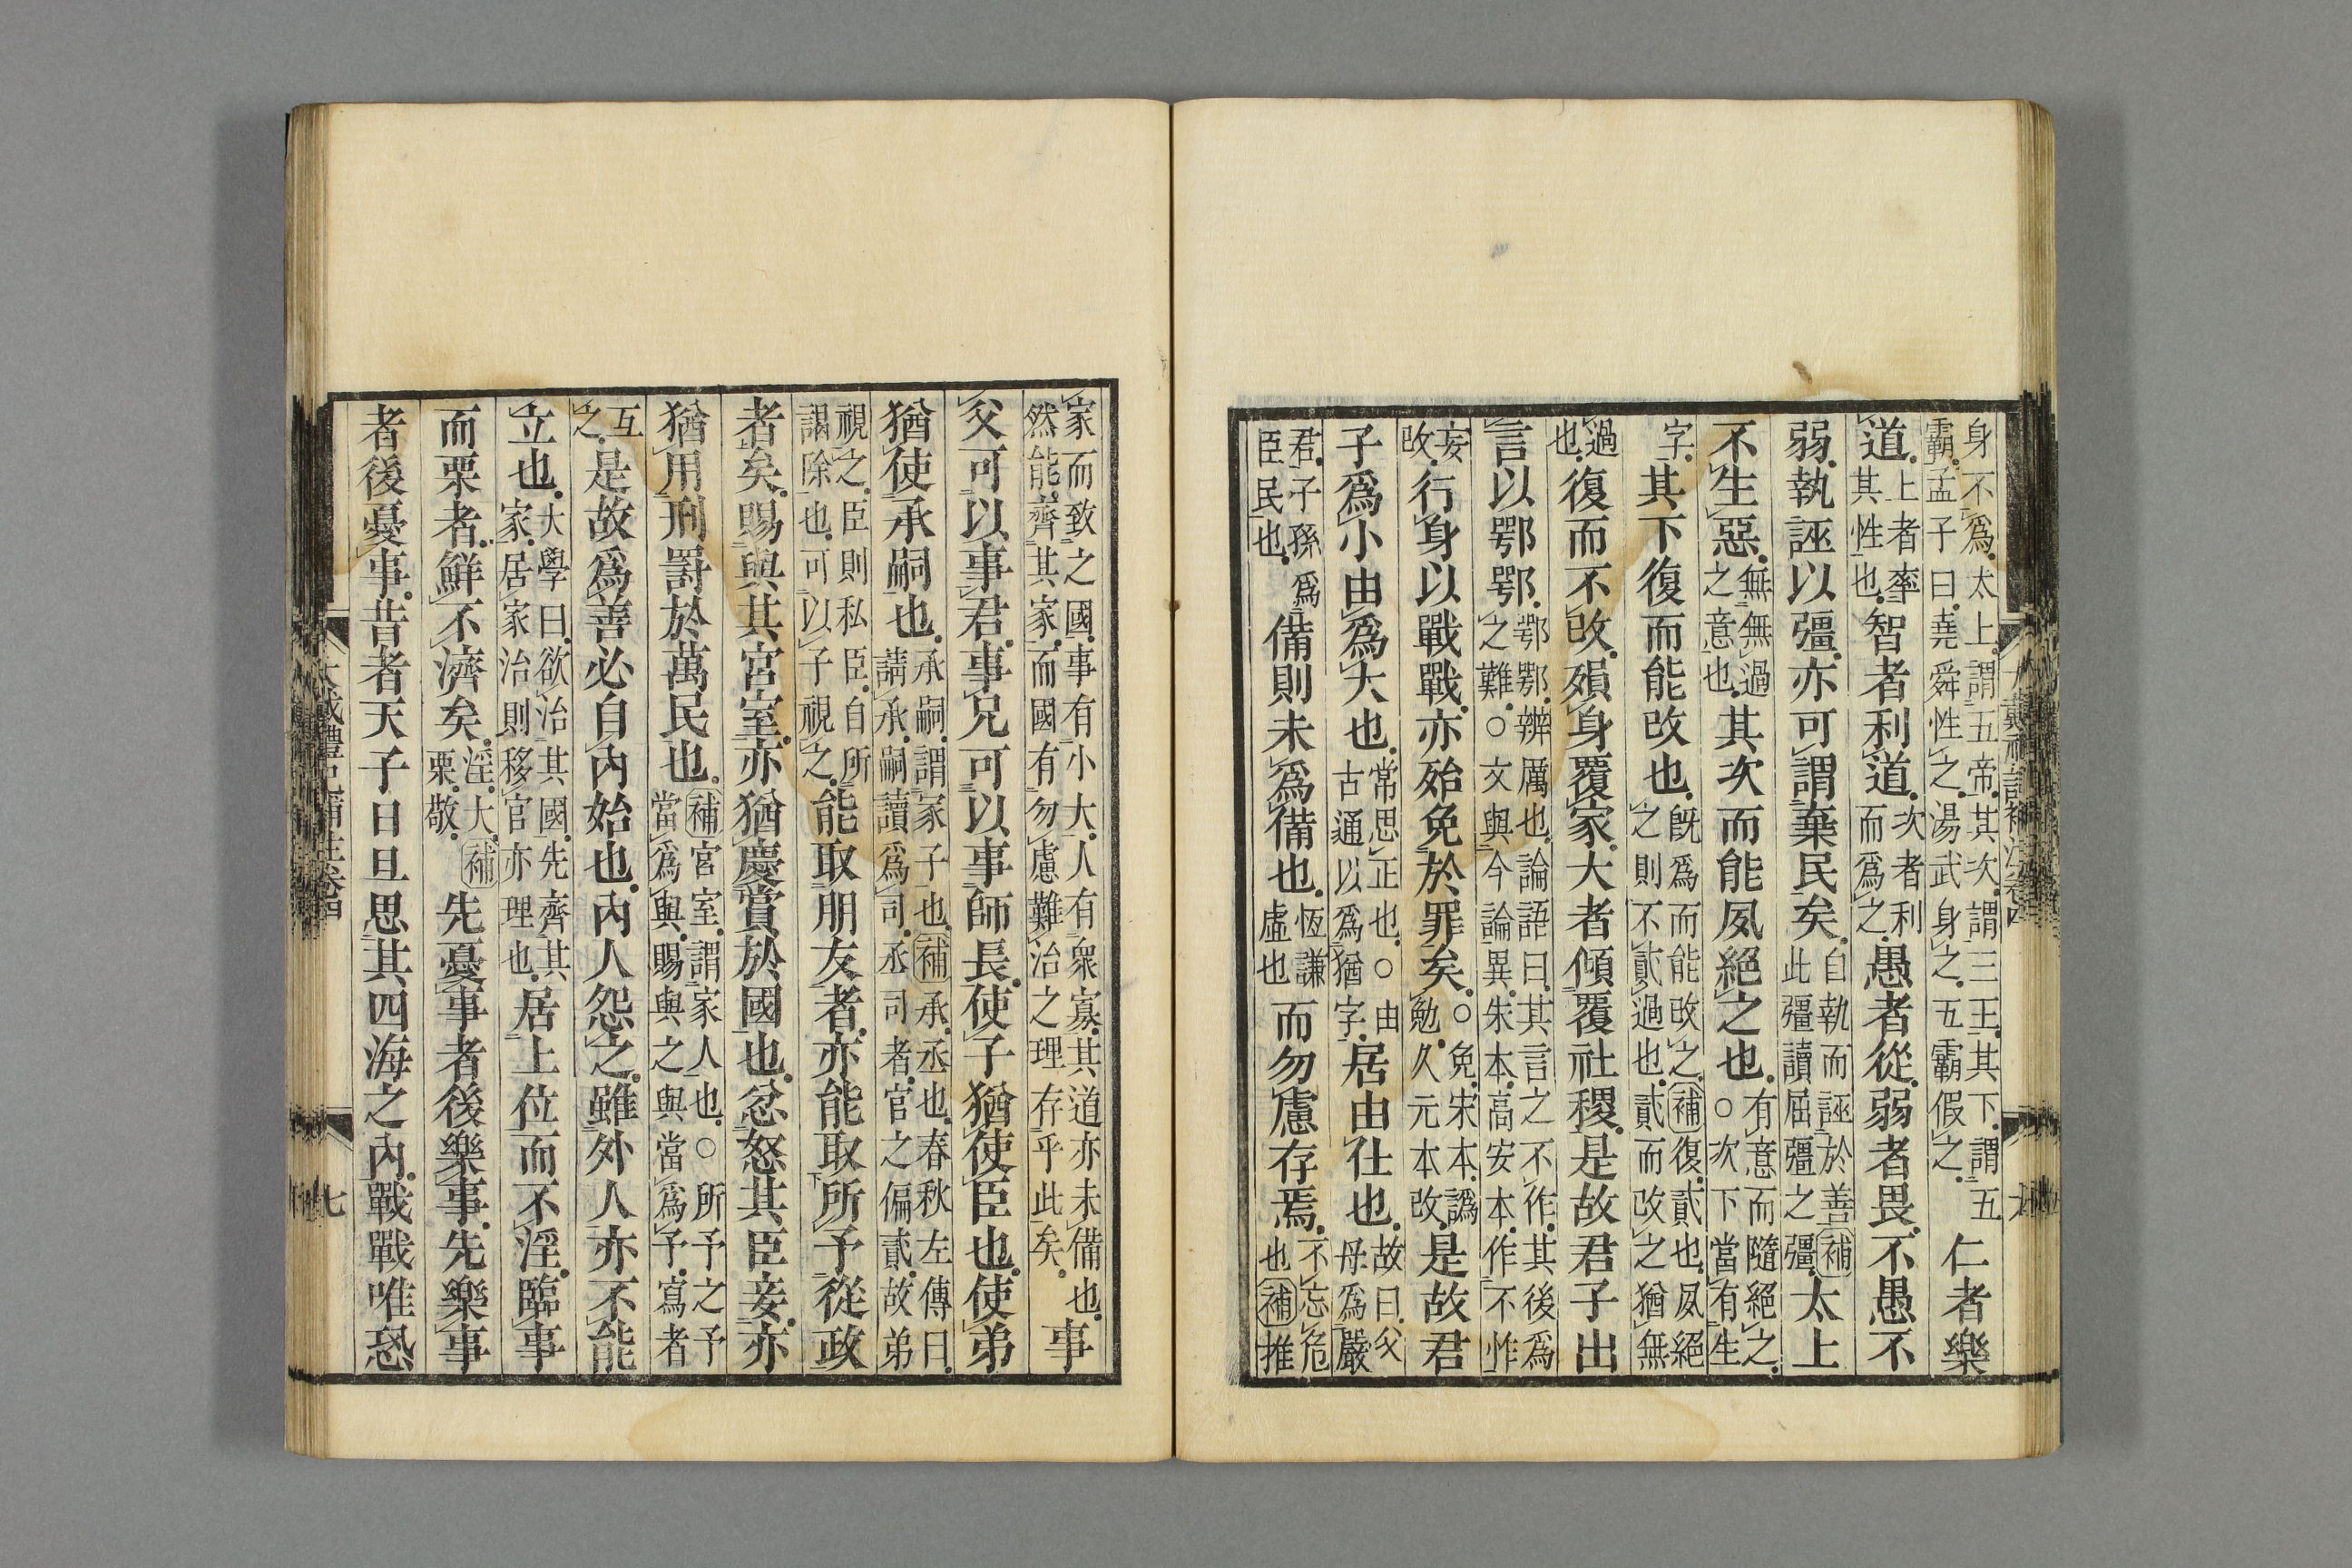 身不爲太上謂五帝其次謂三王其下謂五霸孟子曰堯舜性之湯武身之五霸假之仁者樂
道上者率其性也智者利道次者利而爲之愚者從弱者畏不愚不
弱執誣以彊亦可謂棄民矣自執而誣於善補此彊讀屈彊之彊太上
不生惡無無過之意也其次而能夙絕之也有意而隨絕之○次下當有生
字其下復而能改也既爲而能改之補復貳也夙絕之則不貳過也貳而改之猶無
過也復而不改殞身覆家大者傾覆社稷是故君子出
言以鄂鄂鄂鄂辨厲也論語曰其言之不作其後爲之難○文與今論異朱本高安本作不怍
妄改行身以戰戰亦殆免於罪矣○免宋本譌勉久元本改是故君
子爲小由爲大也常思正也○由古通以爲猶字居由仕也故曰父母爲嚴
君子孫爲臣民也備則未爲備也恆謙虛也而勿慮存焉不忘危也補推
家而致之國事有小大人有衆寡其道亦未備也然能齊其家而國有勿慮難治之理存乎此矣事
父可以事君事兄可以事師長使子猶使臣也使弟
猶使承嗣也承嗣謂冢子也補承丞也春秋左傳曰請承嗣讀爲司丞司者官之偏貳故弟
視之臣則私臣自所謂除也可以子視之能取朋友者亦能取所予從政
者矣賜與其宮室亦猶慶賞於國也忿怒其臣妾亦
猶用刑罰於萬民也補宮室謂家人也○所予之予當爲與賜與之與當爲予寫者
互之是故爲善必自內始也內人怨之雖外人亦不能
立也大學曰欲治其國先齊其家居家治則移官亦理也居上位而不淫臨事
而栗者鮮不濟矣淫大栗敬補先憂事者後樂事先樂事
者後憂事昔者天子日旦思其四海之內戰戰唯恐
大戴禮記補注卷四
七